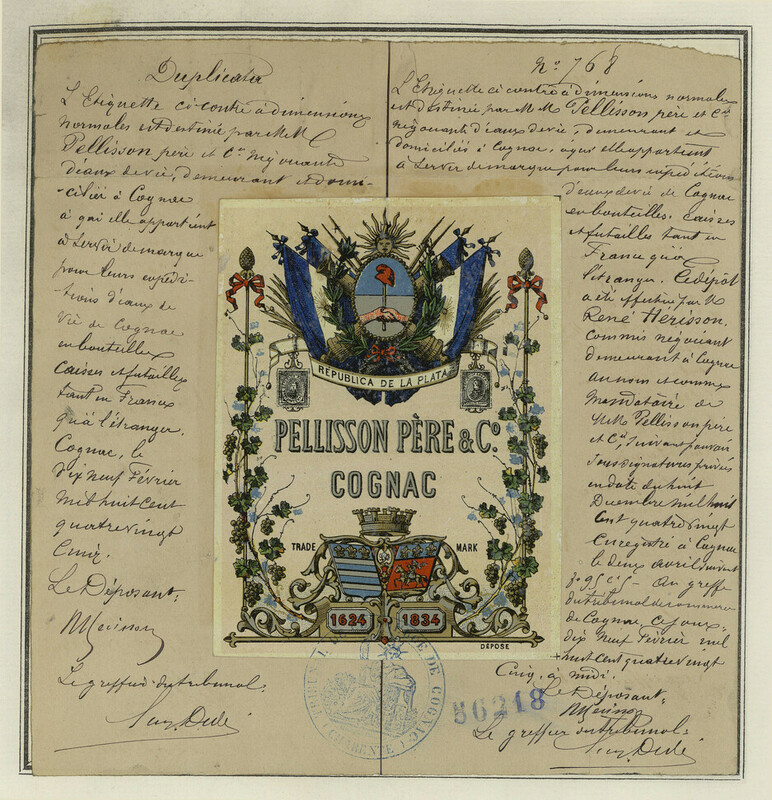 Duplicata
L'Etiquette ci-contre à dimensions
normales est destinée par M M
Pellisson père et Cie négociants
d'eaux de vie, demeurant et domi-
ciliés à Cognac
à qui elle appartient
à servir de marque
pour leurs expédi-
tions d'eaux de
Vie de Cognac
en bouteilles
Caisses et futailles
tant en France
qu'à l'étranger.
Cognac, le
dix neuf Février
mil huit cent
quatre vingt
Cinq.
Le Déposant.
Le greffier du tribunal.
No 768
L'Etiquette ci contre à dimensions normales
est destinée par M M Pellisson père et Cie
négociants d'eaux de vie, demeurant et
domiciliés à Cognac, à qui elle appartient
à servir de marque pour leurs expéditions
d'eaux de vie de Cognac
en bouteilles, caisses
et futailles tant en
France qu'à
l'étranger. Ce dépôt
a été effectué par M
René Hérisson,
Commis négociant
demeurant à Cognac
au nom et comme
mandataire de
M M Pellisson père
et Cie, suivant pouvoir
sous signatures privées
en date du huit
Décembre mil huit
Cent quatre vingt
enregistré à Cognac
le deux avril suivant
Au greffe
du tribunal de commerce
de Cognac, ce jour,
dix neuf Février mil
huit cent quatre vingt
Cinq, à midi.
Le Déposant.
Le greffier du tribunal.
REPUBLICA DE LA PLATA
PELLISSON PÈRE & Co.
COGNAC
TRADE MARK
1624 1834
DÉPOSÉ
DE COGNAC
(CHARENTE)
56218